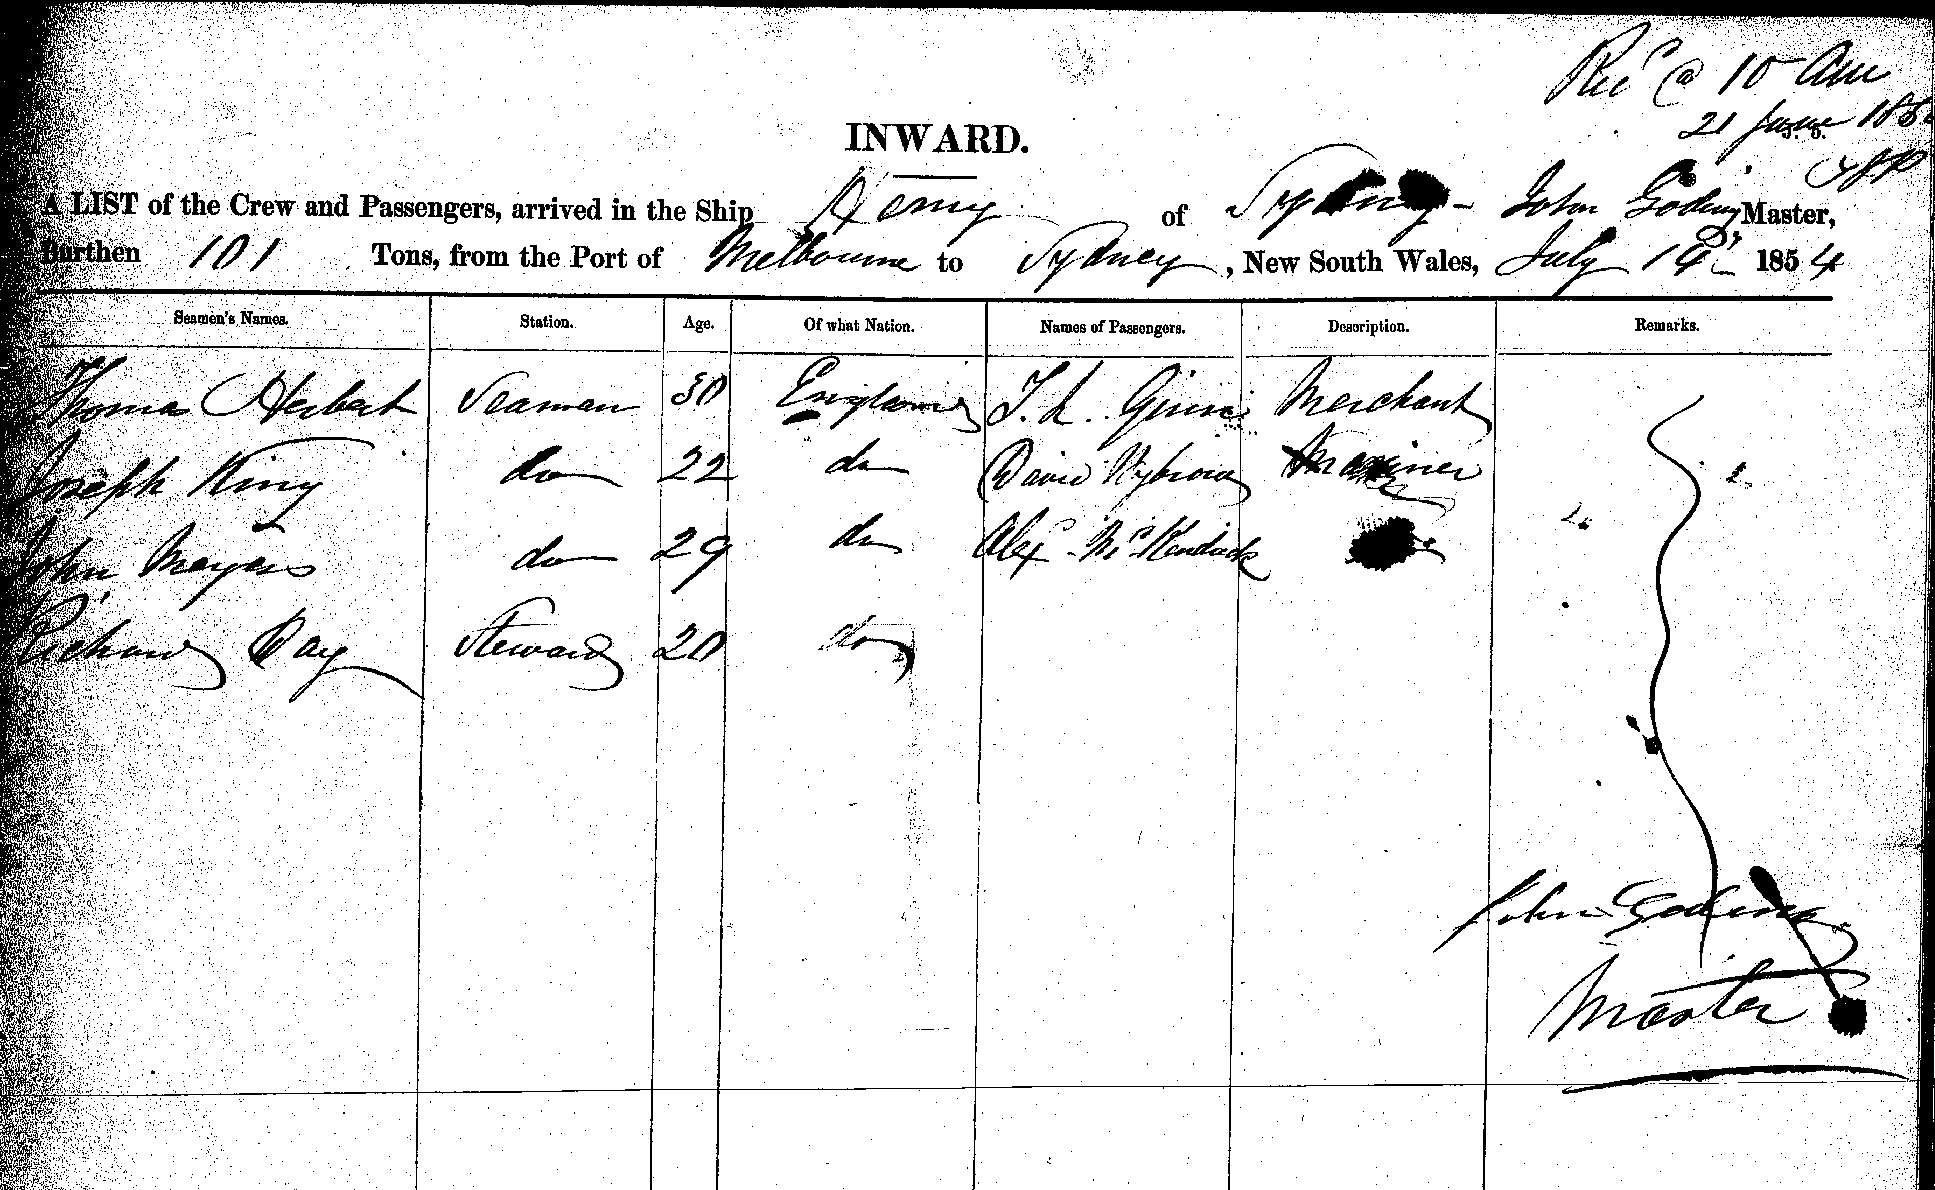 Recd @ 10 Am
21 June 185
INWARD.
A LIST of the Crew and Passengers, arrived in the Ship of Sydney - John Goding Master,
Burthen 101 Tons, from the Port of Melbourne to Sydney, New South Wales, July 19th 1854
Seamen's Names. Station. Age. Of what Nation. Names of Passengers. Description. Remarks.
Thomas Herbert Seaman 30 England Merchant
Joseph King do 22 do David Mariner
John Meyers do 29 do Alexr
Richard Day Steward 20 do
John Goding
Master